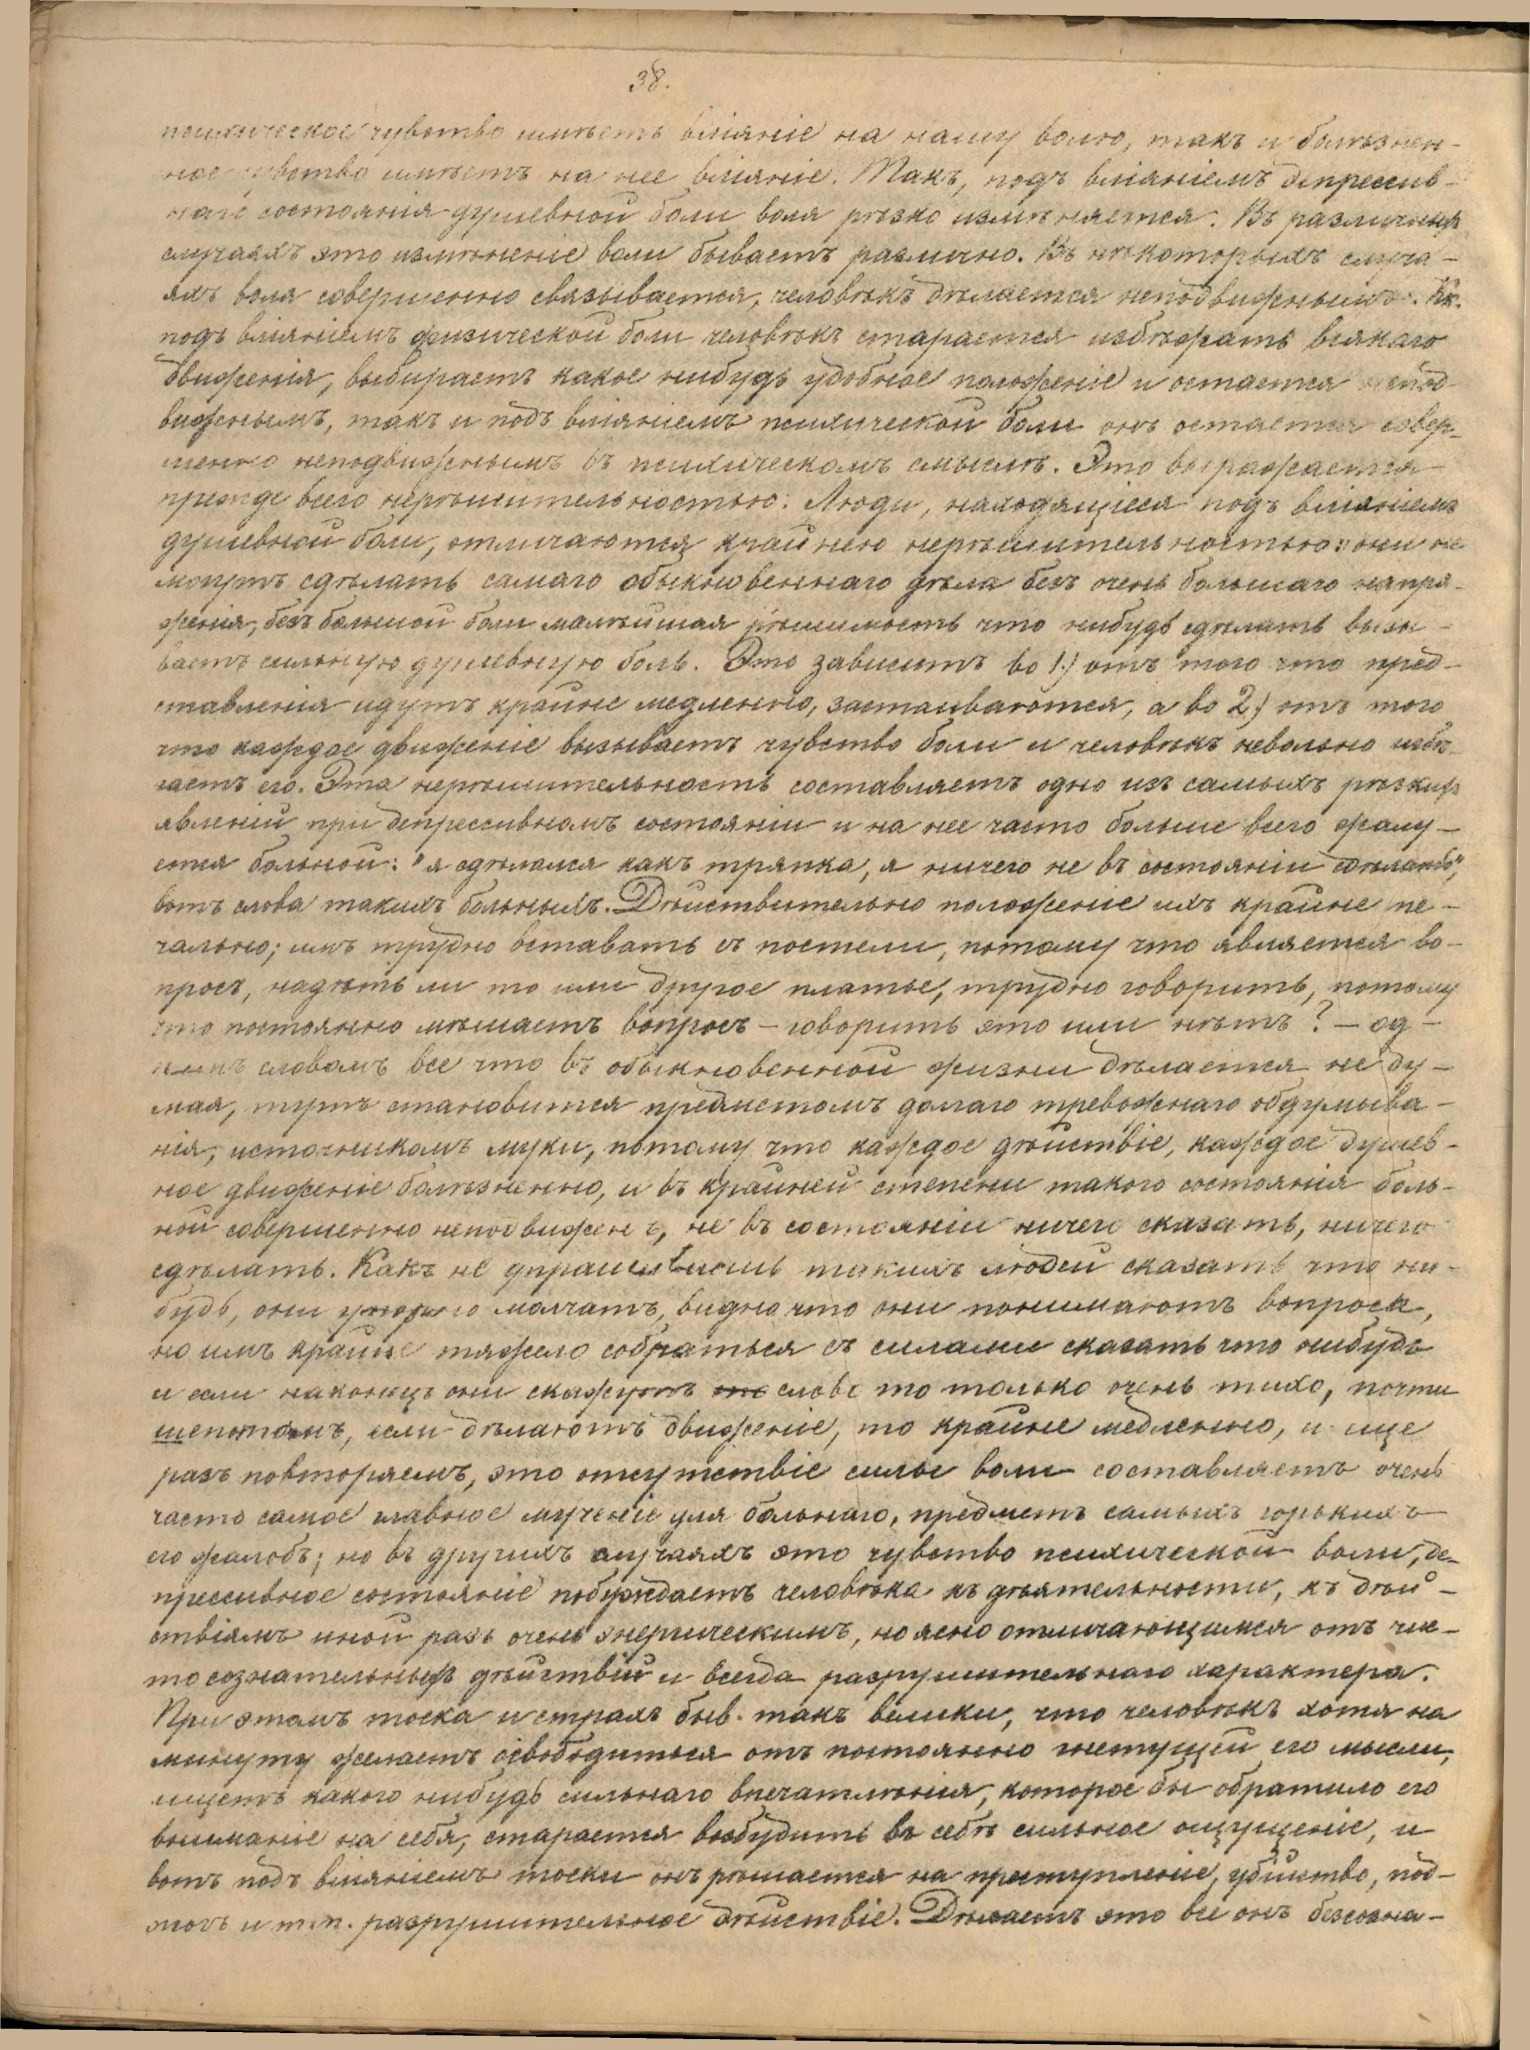 38.
психическое чувство имѣетъ вліяніе на нашу волю, такъ и болѣзнен-
ное чувство имѣетъ на нее вліяніе. Такъ, подъ вліяніемъ депрессив-
наго состоянія душевной боли воля рѣзко измѣняется. Въ различныхъ
случаяхъ это измѣненіе воли бываетъ различно. Въ нѣкоторыхъ случа-
яхъ воля совершенно связывается, человѣкъ дѣлается неподвижнымъ. Кк.
подъ вліяніемъ физической боли человѣкъ старается избѣжать всякаго
движенія, выбираетъ какое нибудь удобное положеніе и остается непод-
вижнымъ, такъ и подъ вліяніемъ психической боли онъ остается совер-
шенно неподвижнымъ въ психическомъ смыслѣ. Это выражается
прежде всего нерѣшительностью. Люди, находящіеся подъ вліяніемъ
душевной боли, отличаются крайнею нерѣшительностью: они не
могутъ сдѣлать самаго обыкновеннаго дѣла безъ очень большаго напря-
женія, безъ большой боли малѣйшая рѣшимость что нибудь сдѣлать вызы-
ваетъ сильную душевную боль. Это зависитъ во 1.) отъ того что пред-
ставленія идутъ крайне медленно, застаиваются, а во 2.) отъ того
что каждое движеніе вызываетъ чувство боли и человѣкъ невольно избѣ-
гаетъ его. Эта нерѣшительность составляетъ одно изъ самыхъ рѣзкихъ
явленій при депрессивномъ состояніи и на нее часто больше всего жалу-
ется больной: "я сдѣлался какъ тряпка, я ничего не въ состояніи сдѣлать",
вотъ слова такихъ больныхъ. Дѣйствительно положеніе ихъ крайне пе-
чально; имъ трудно вставать съ постели, потому что является во-
просъ, надѣть ли то или другое платье, трудно говорить, потому
что постоянно мѣшаетъ вопросъ – говорить это или нѣтъ? – од-
нимъ словомъ все что въ обыкновенной жизни дѣлается не ду-
мая, тутъ становится предметомъ долгаго тревожнаго обдумыва-
нія, источникомъ муки, потому что каждое дѣйствіе, каждое душев-
ное движеніе болѣзненно, и въ крайней степени такого состоянія боль-
ной совершенно неподвиженъ, не въ состояніи ничего сказать, ничего
сдѣлать. Какъ не упрашиваешь такихъ людей сказать что ни-
будь, они упорно молчатъ, видно что они понимаютъ вопроса,
но имъ крайне тяжело собраться съ силами сказать что нибудь
и если наконецъ они скажутъ слово то только очень тихо, почти
шепотомъ, если дѣлаютъ движеніе, то крайне медленно, и еще
разъ повторяемъ, это отсутствіе силы воли составляетъ очень
часто самое главное мученіе для больнаго, предметъ самыхъ горькихъ
его жалобъ; но въ другихъ случаяхъ это чувство психической боли, де-
прессивное состояніе побуждаетъ человѣка къ дѣятельности, къ дѣй-
ствіямъ иной разъ очень энергическимъ, но ясно отличающимся отъ чис-
то сознательныхъ дѣйствій и всегда разрушительнаго характера.
При этомъ тоска и страхъ быв. такъ велики, что человѣкъ хотя на
минуту желаетъ освободиться отъ постоянно гнетущей его мысли,
ищетъ какого нибудь сильнаго впечатлѣнія, которое бы обратило его
вниманіе на себя, старается возбудить въ себѣ сильное ощущеніе, и
вотъ подъ вліяніемъ тоски онъ рѣшается на преступленіе, убійство, под-
жогъ и т.п. разрушительное дѣйствіе. Дѣлаетъ это все онъ безсозна-